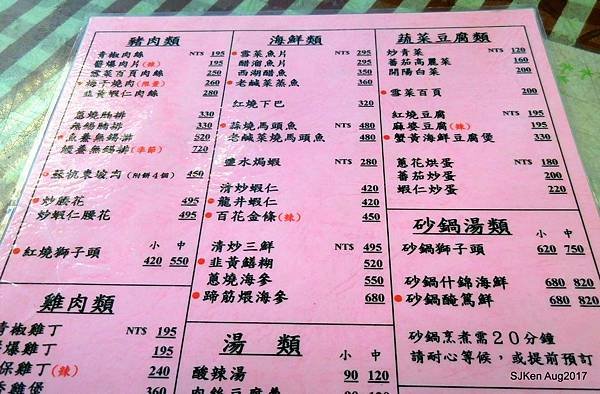 豬肉類
青椒肉絲 NT$ 195
醬爆肉片(辣) 195
雪菜百頁肉絲 250
梅子燒肉(限量) 260
韭黃蝦仁肉絲 260
蔥燒腩排 330
無錫腩排 330
魚香無錫排 480
鰻香無錫排(季節) 720
蘇杭東坡肉(附餅4個) 450
炒腰花 495
炒蝦仁腰花 495
小 中
紅燒獅子頭 420 550
雞肉類
青椒雞丁 NT$ 195
爆雞丁 195
保雞丁(辣) 240
雞煲 360
海鮮類
雪菜魚片 NT$ 295
醋溜魚片 295
西湖醋魚 350
老鹹菜蒸魚 350
紅燒下巴 320
蒜燒馬頭魚 NT$ 480
老鹹菜燒馬頭魚 480
鹽水焗蝦 NT$ 280
清炒蝦仁 420
龍井蝦仁 420
百花金條(辣) 450
清炒三鮮 NT$ 495
韭黃鱔糊 520
蔥燒海參 550
蹄筋煨海參 680
湯類
小 中
酸辣湯 90 120
90 120
蔬菜豆腐類
炒青菜 NT$ 120
蕃茄高麗菜 160
開陽白菜 200
雪菜百頁 200
紅燒豆腐 NT$ 195
麻婆豆腐(辣) 195
蟹黃海鮮豆腐煲 330
蔥花烘蛋 NT$ 180
蕃茄炒蛋 200
蝦仁炒蛋 220
砂鍋湯類
小 中
砂鍋獅子頭 620 750
砂鍋什錦海鮮 680 820
砂鍋醃篤鮮 680 820
砂鍋烹煮需20分鐘
請耐心等候，或提前預訂
SJKen Aug2017